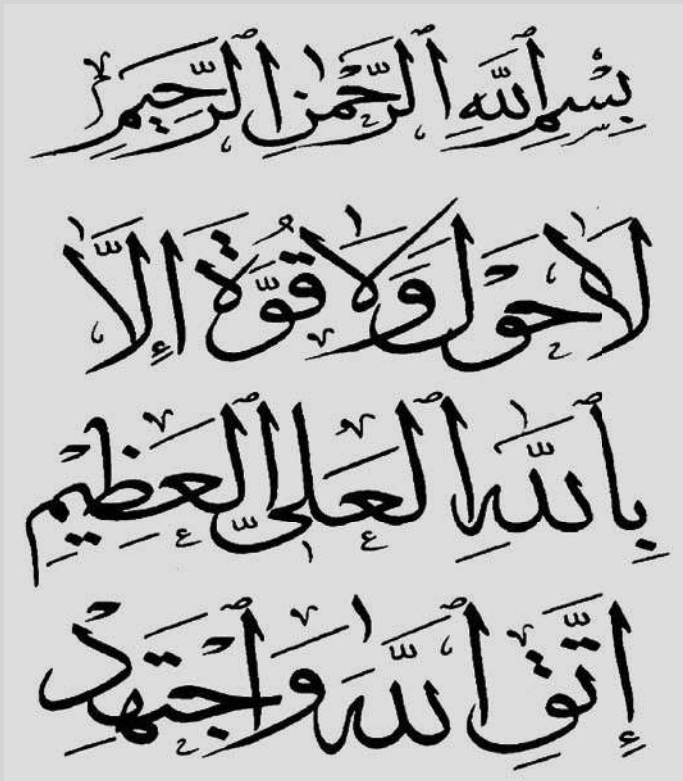 بِسْمِ ٱللَّهِ ٱلرَّحْمٰنِ ٱلرَّحِيمِ
لَا حَوْلَ وَلَا قُوَّةَ إِلَّا
بِٱللَّهِ ٱلْعَلِىِّ ٱلْعَظِيمِ
إِتَّقِ ٱللَّهَ وَٱجْتَهِدْ